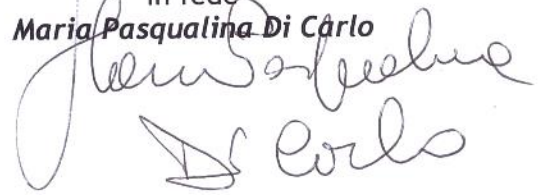 In fede
Maria Pasqualina Di Carlo
Maria Pasqualina
Di Carlo